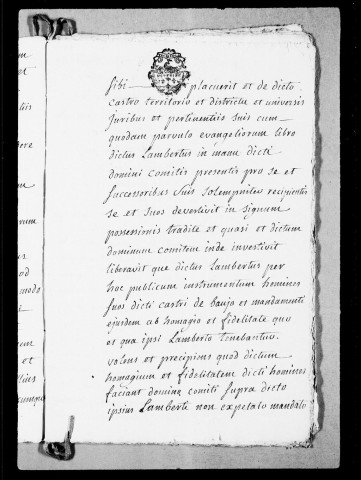 sibi placuerit et de dicto
castro territorio et districtu et universis
Juribus et pertinentiis suis cum
quodam parvulo evangeliorum libro
dictus Lambertus in manu dicti
domini comitis presentis pro se et
successoribus suis solempniter recipientis
se et suos devestivit in signum
possessionis tradite et quasi et dictum
dominum comitem inde investivit
liberavit que dictus Lambertus per
hoc publicum instrumentum homines
suos dicti castri de baujo et mandamenti
ejusdem ab homagio et fidelitate quo
et qua ipsi Lamberto tenebantur
volens et precipiens quod dictum
homagium et fidelitatem dicti homines
faciant domino comiti supra dicto
ipsius Lamberti non expetato mandato